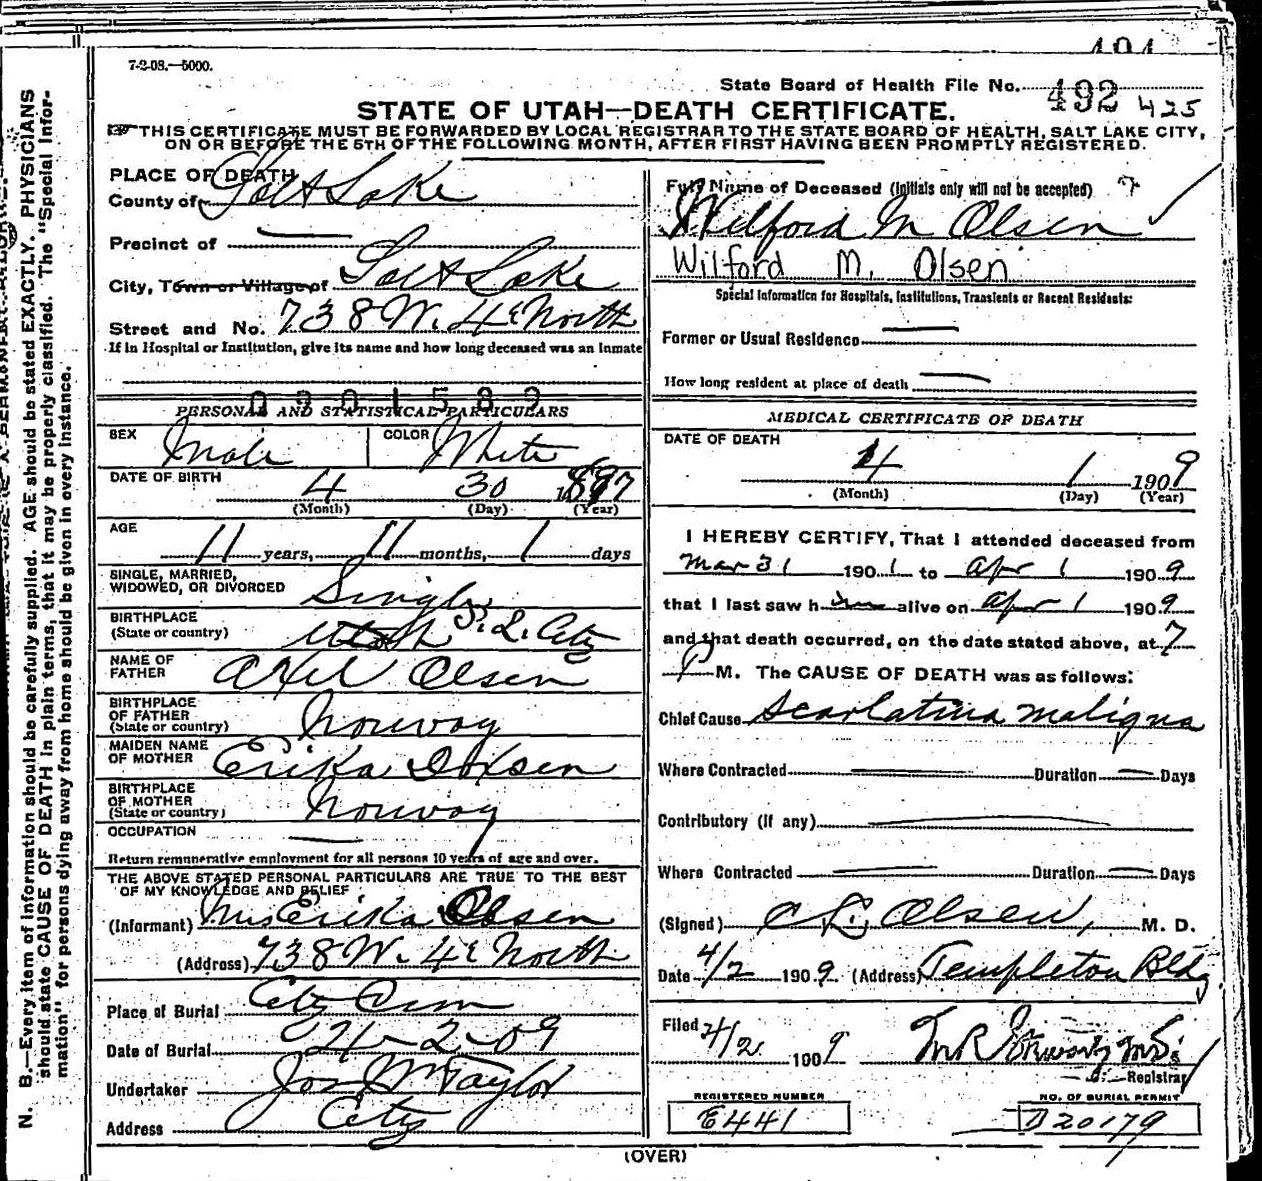 7-2-08.—5000.
State Board of Health File No. 492 425
STATE OF UTAH—DEATH CERTIFICATE.
THIS CERTIFICATE MUST BE FORWARDED BY LOCAL REGISTRAR TO THE STATE BOARD OF HEALTH, SALT LAKE CITY,
ON OR BEFORE THE 5TH OF THE FOLLOWING MONTH, AFTER FIRST HAVING BEEN PROMPTLY REGISTERED.
PLACE OF DEATH
County of Salt Lake
Precinct of —
City, Town or Village of Salt Lake
Street and No. 738 W. 4th North
If in Hospital or Institution, give its name and how long deceased was an inmate
0901582
PERSONAL AND STATISTICAL PARTICULARS
SEX Male COLOR White
DATE OF BIRTH 4 30 1897
(Month) (Day) (Year)
AGE
11 years, 11 months, 1 days
SINGLE, MARRIED,
WIDOWED, OR DIVORCED Single
BIRTHPLACE
(State or country) Utah S. L. City
NAME OF
FATHER Axel Olsen
BIRTHPLACE
OF FATHER
(State or country) Norway
MAIDEN NAME
OF MOTHER Erika
BIRTHPLACE
OF MOTHER
(State or country) Norway
OCCUPATION —
Return remunerative employment for all persons 10 years of age and over.
THE ABOVE STATED PERSONAL PARTICULARS ARE TRUE TO THE BEST
OF MY KNOWLEDGE AND BELIEF
(Informant) Mrs Erika Olsen
(Address) 738 W. 4th North
Place of Burial City Cem
Date of Burial 4-2-09
Undertaker Jos Wm Taylor
Address City
Full Name of Deceased (Initials only will not be accepted)
Wilford M Olsen
Wilford M. Olsen
Special Information for Hospitals, Institutions, Transients or Recent Residents:
Former or Usual Residence —
How long resident at place of death —
MEDICAL CERTIFICATE OF DEATH
DATE OF DEATH
4 1 1909
(Month) (Day) (Year)
I HEREBY CERTIFY, That I attended deceased from
Mar 31 1901 to Apr 1 1909
that I last saw him alive on Apr 1 1909
and that death occurred, on the date stated above, at 7
P M. The CAUSE OF DEATH was as follows:
Chief Cause Scarlatina Maligna
Where Contracted — Duration — Days
Contributory (if any) —
Where Contracted — Duration — Days
(Signed) C L Olsen, M. D.
Date 4/2 1909 (Address) Templeton Bldg
Filed 4/2 1909
Registrar
REGISTERED NUMBER
E441
NO. OF BURIAL PERMIT
B20179
(OVER)
N. B.—Every item of information should be carefully supplied. AGE should be stated EXACTLY. PHYSICIANS
should state CAUSE OF DEATH in plain terms, that it may be properly classified. The "Special Infor-
mation" for persons dying away from home should be given in every instance.